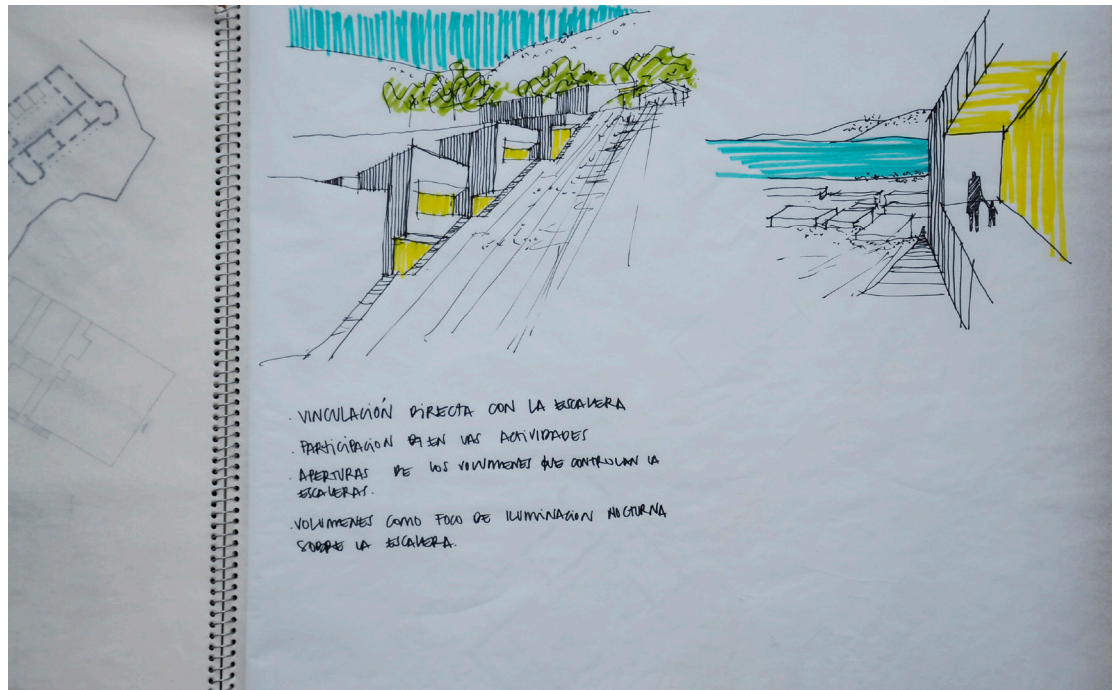 . VINCULACIÓN DIRECTA CON LA ESCALERA
. PARTICIPACION EN LAS ACTIVIDADES
. APERTURAS DE LOS VOLUMENES QUE CONTROLAN LA
ESCALERAS.
. VOLUMENES COMO FOCO DE ILUMINACION NOCTURNA
SOBRE LA ESCALERA.